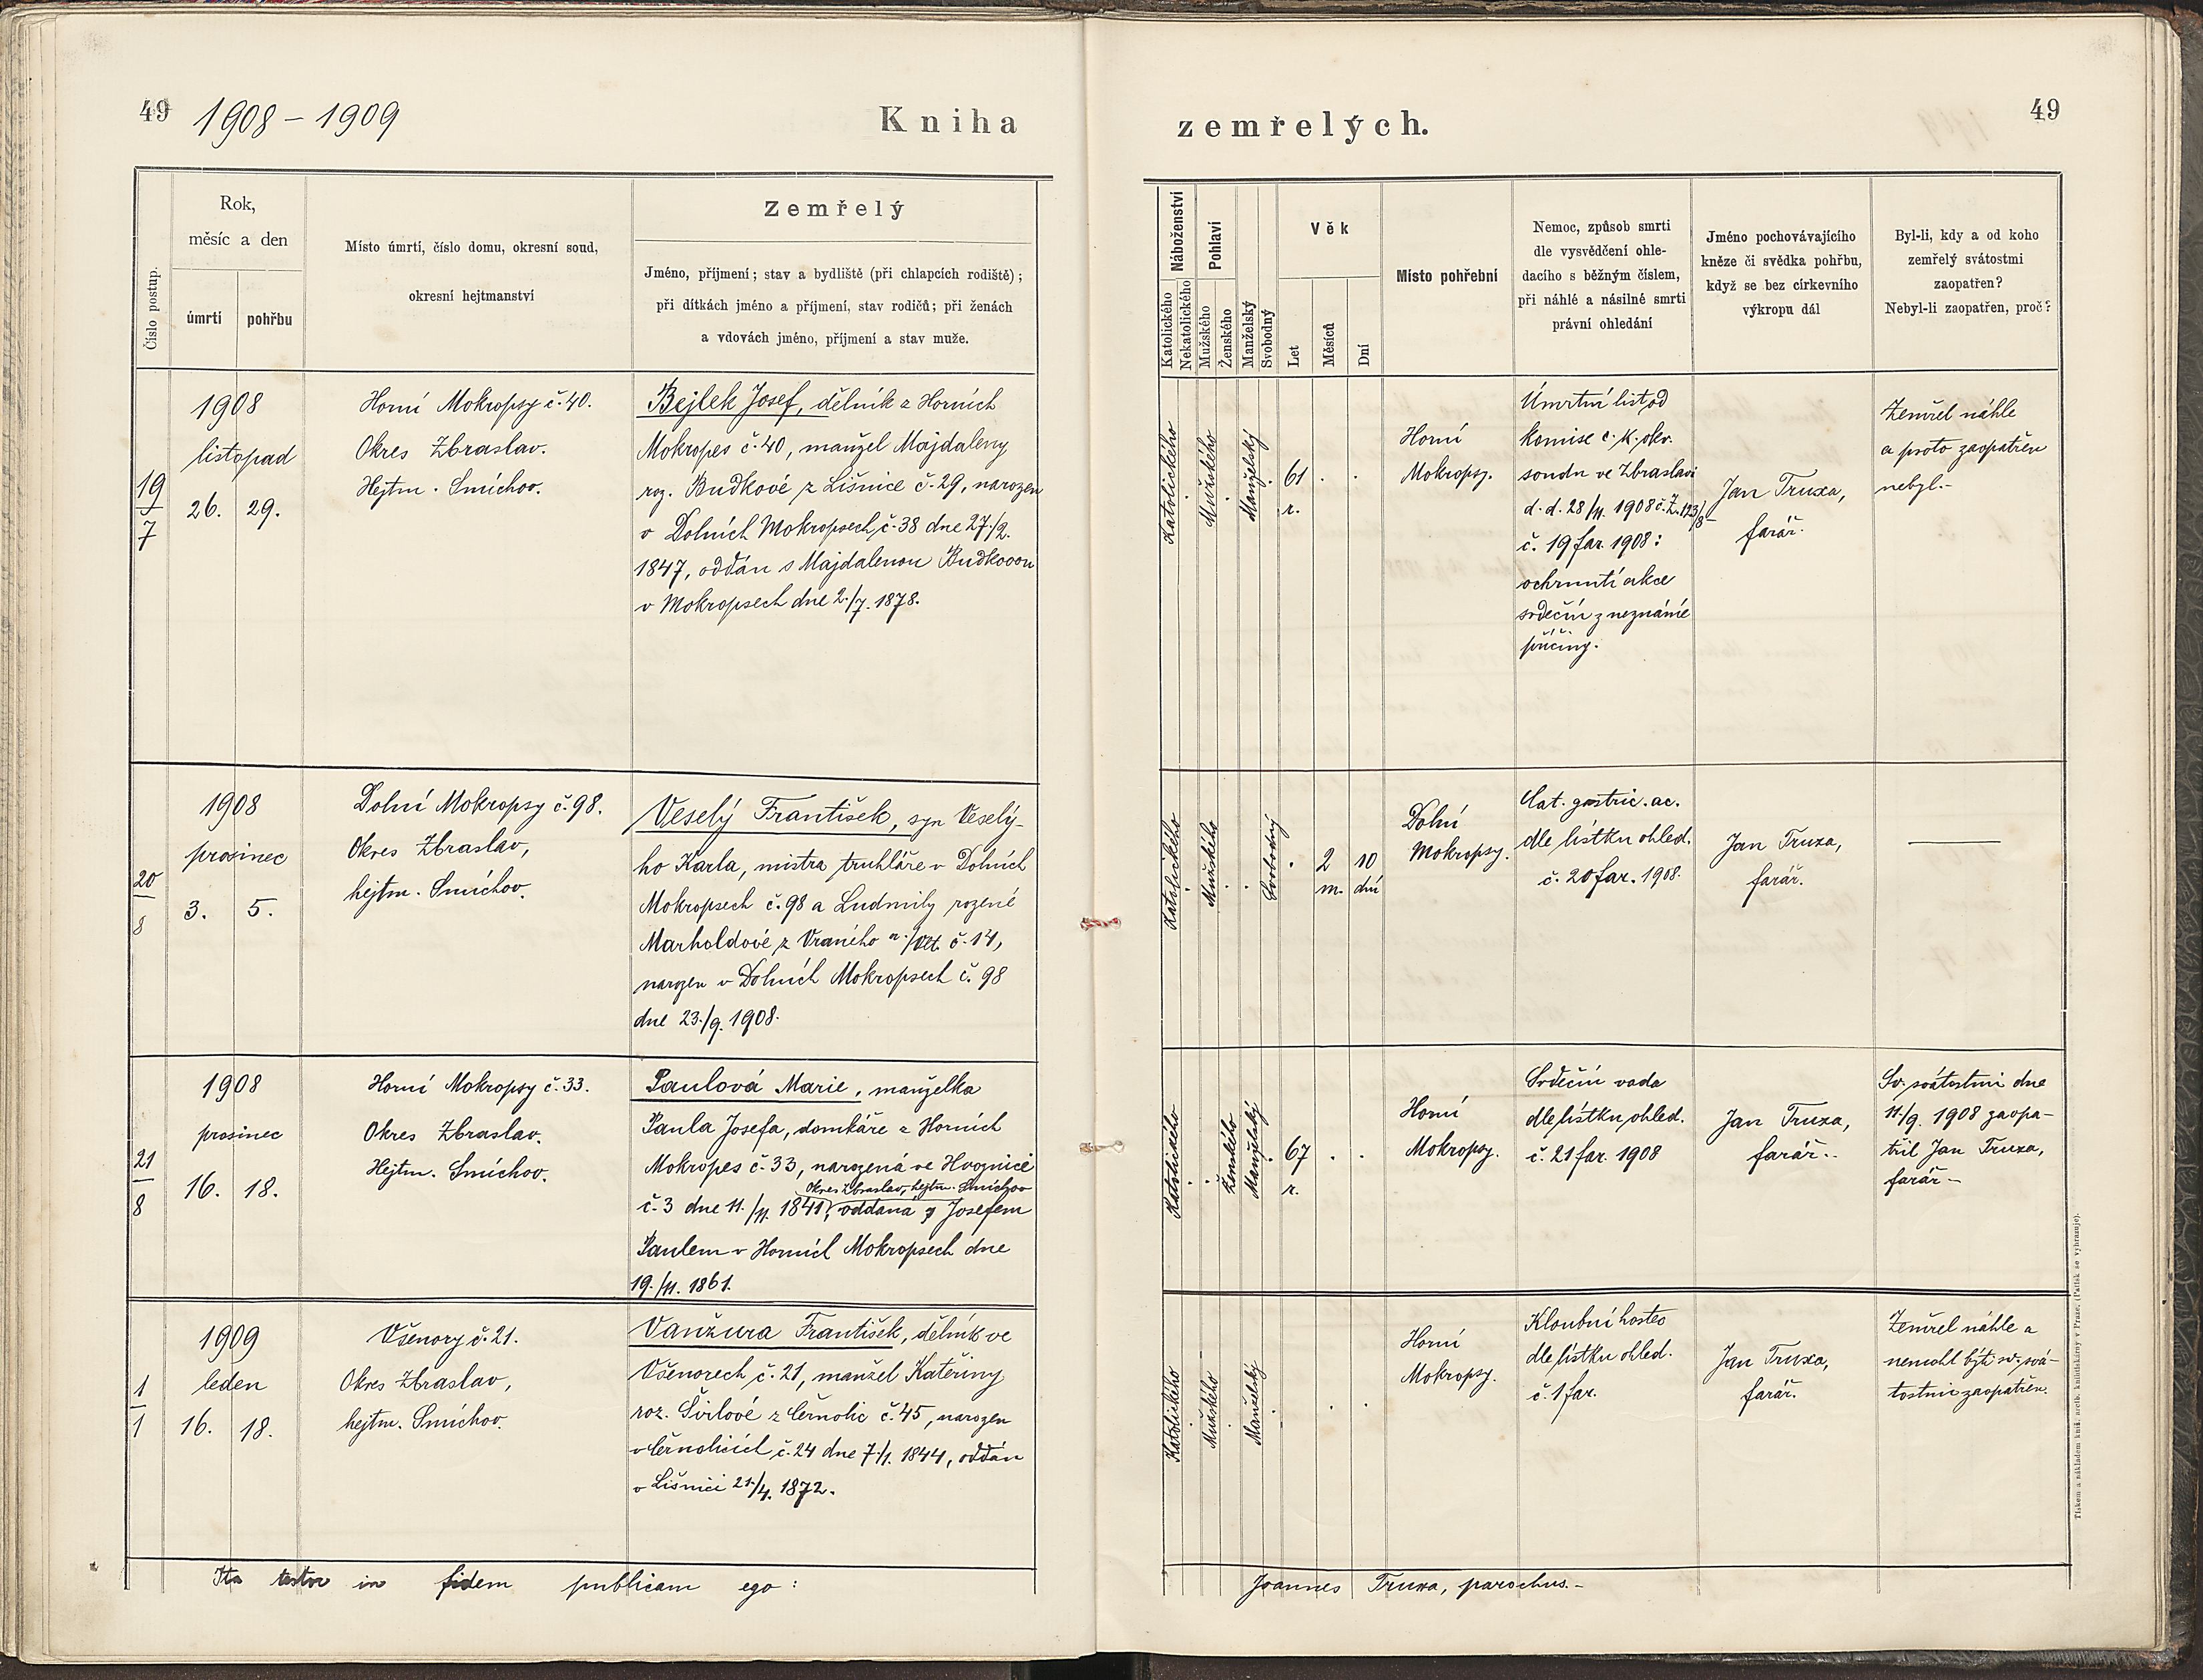 49 1908 – 1909
Kniha
zemřelých.
49
Číslo postup.
Rok,
měsíc a den
úmrtí
pohřbu
Místo úmrtí, číslo domu, okresní soud,
okresní hejtmanství
Zemřelý
Jméno, příjmení; stav a bydliště (při chlapcích rodiště);
při dítkách jméno a příjmení, stav rodičů; při ženách
a vdovách jméno, příjmení a stav muže.
Náboženství
Katolického
Nekatolického
Pohlaví
Mužského
Ženského
Manželský
Svobodný
Věk
Let
Měsíců
Dní
Místo pohřební
Nemoc, způsob smrti
dle vysvědčení ohle-
dacího s běžným číslem,
při náhlé a násilné smrti
právní ohledání
Jméno pochovávajícího
kněze či svědka pohřbu,
když se bez církevního
výkropu dál
Byl-li, kdy a od koho
zemřelý svátostmi
zaopatřen?
Nebyl-li zaopatřen, proč?
19
7
1908
listopad
26. 29.
Horní Mokropsy č. 40.
Okres Zbraslav.
Hejtm. Smíchov.
Bejlek Josef, dělník z Horních
Mokropes č. 40, manžel Majdaleny
roz. Budkové z Líšnice č. 29, narozen
v Dolních Mokropsech č. 38 dne 27./2.
1847, oddán s Majdalenou Budkovou
v Mokropsech dne 2./7. 1878.
Katolického
Mužského
Manželský
61
r.
Horní
Mokropsy.
Úmrtní list od
komise c. k. okr.
soudu ve Zbraslavi
d. d. 28/11. 1908 č. Z. 123/8
č. 19 far. 1908:
ochrnutí akce
srdeční z neznámé
příčiny.
Jan Truxa,
farář.
Zemřel náhle
a proto zaopatřen
nebyl.-
20
8
1908
prosinec
3. 5.
Dolní Mokropsy č. 98.
Okres Zbraslav,
hejtm. Smíchov.
Veselý František, syn Veselý-
ho Karla, mistra truhláře v Dolních
Mokropsech č. 98 a Ludmily rozené
Marholdové z Vraného n./Vlt. č. 14,
narozen v Dolních Mokropsech č. 98
dne 23./9. 1908.
Katolického
Mužského
Svobodný
2
m.
10
dní
Dolní
Mokropsy.
Cat. gastric. ac.
dle lístku ohled.
č. 20 far. 1908.
Jan Truxa,
farář.
21
8
1908
prosinec
16. 18.
Horní Mokropsy č. 33.
Okres Zbraslav.
Hejtm. Smíchov.
Paulová Marie, manželka
Paula Josefa, domkáře z Horních
Mokropes č. 33, narozená ve Hvoznici
okres Zbraslav, hejtm. Smíchov
č. 3 dne 11./11. 1841, oddaná s Josefem
Paulem v Horních Mokropsech dne
19./11. 1861.
Katolického
Ženského
Manželský
67
r.
Horní
Mokropsy.
Srdeční vada
dle lístku ohled.
č. 21 far. 1908
Jan Truxa,
farář.
Sv. svátostmi dne
11./9. 1908 zaopa-
třil Jan Truxa,
farář –
1
1
1909
leden
16. 18.
Všenory č. 21.
Okres Zbraslav,
hejtm. Smíchov.
Vanžura František, dělník ve
Všenorech č. 21, manžel Kateřiny
roz. Švílové z Černolic č. 45, narozen
v Černolicích č. 24 dne 7./1. 1844, oddán
v Líšnici 21./4. 1872.
Katolického
Mužského
Manželský
Horní
Mokropsy.
Kloubní hostec
dle lístku ohled.
č. 1 far.
Jan Truxa,
farář.
Zemřel náhle a
nemohl býti sv. svá-
tostmi zaopatřen.
Ita testor in fidem publicam ego:
Joannes Truxa, parochus.-